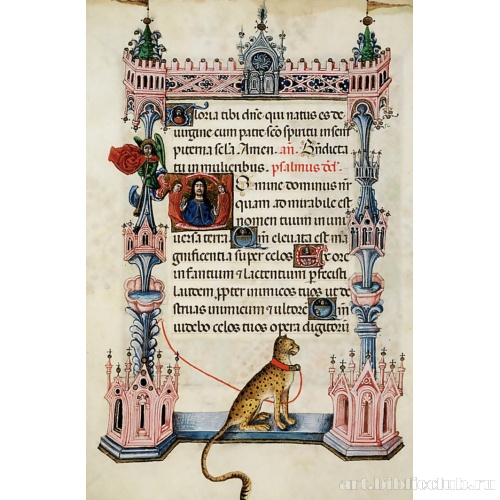 Gloria tibi dñe qui natus es de
uirgine cum patre sc̃o spiritu in sem
piterna sela. Amen. añ. Bñdicta
tu in mulieribus. psalmus dd̃.
Domine dominus nr̃
quam admirabile est
nomen tuum in uni
uersa terra Qm̃ eleuata est ma
gnificentia super celos Ex ore
infantium & lactentium perfecisti
laudem, propter inimicos tuos ut de
struas inimicum & ultorẽ Qm̃
uidebo celos tuos opera digitorũ
art.biblioclub.ru